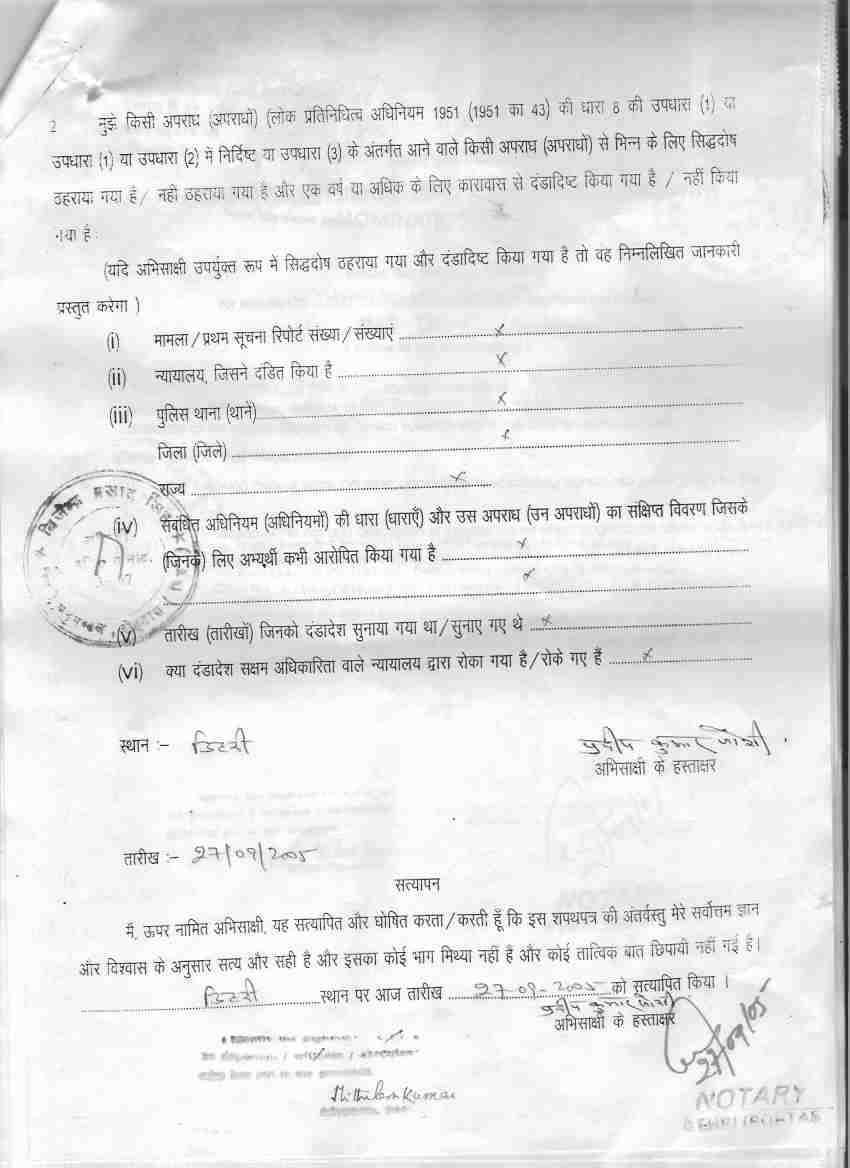 2 मुझे किसी अपराध (अपराधों) (लोक प्रतिनिधित्व अधिनियम 1951 (1951 का 43) की धारा 8 की उपधारा (1) या
उपधारा (1) या उपधारा (2) में निर्दिष्ट या उपधारा (3) के अंतर्गत आने वाले किसी अपराध (अपराधों) से भिन्न के लिए सिद्धदोष
ठहराया गया है / नहीं ठहराया गया है और एक वर्ष या अधिक के लिए कारावास से दंडादिष्ट किया गया है / नहीं किया
गया है
(यदि अभिसाक्षी उपर्युक्त रूप में सिद्धदोष ठहराया गया और दंडादिष्ट किया गया है तो वह निम्नलिखित जानकारी
प्रस्तुत करेगा )
(i) मामला/प्रथम सूचना रिपोर्ट संख्या/संख्याएं ........ x ........
(ii) न्यायालय, जिसने दंडित किया है ........ x ........
(iii) पुलिस थाना (थाने) ........ x ........
जिला (जिले) ........ x ........
राज्य ........ x ........
(iv) संबंधित अधिनियम (अधिनियमों) की धारा (धाराएँ) और उस अपराध (उन अपराधों) का संक्षिप्त विवरण जिसके
(जिनके) लिए अभ्यर्थी कभी आरोपित किया गया है ........ x ........
........ x ........
(v) तारीख (तारीखों) जिनको दंडादेश सुनाया गया था/सुनाए गए थे ........ x ........
(vi) क्या दंडादेश सक्षम अधिकारिता वाले न्यायालय द्वारा रोका गया है/रोके गए हैं ........ x ........
स्थान :- डिहरी
प्रदीप कुमार जोशी
अभिसाक्षी के हस्ताक्षर
तारीख :- 27/09/2005
सत्यापन
मैं, ऊपर नामित अभिसाक्षी, यह सत्यापित और घोषित करता/करती हूँ कि इस शपथपत्र की अंतर्वस्तु मेरे सर्वोत्तम ज्ञान
और विश्वास के अनुसार सत्य और सही है और इसका कोई भाग मिथ्या नहीं है और कोई तात्विक बात छिपायी नहीं गई है।
डिहरी स्थान पर आज तारीख 27-09-2005 को सत्यापित किया ।
प्रदीप कुमार जोशी
अभिसाक्षी के हस्ताक्षर
27/09/05
Mithilesh Kumar
NOTARY
DEHRI (ROHTAS